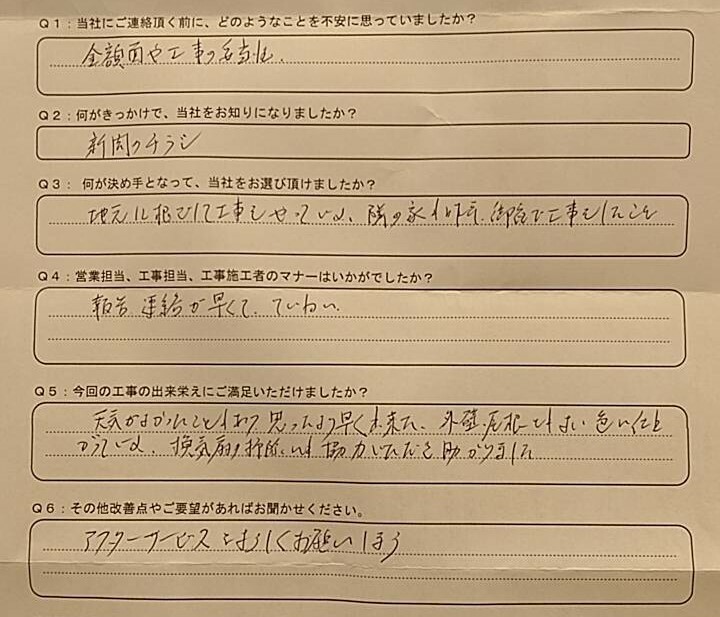 Q1:当社にご連絡頂く前に、どのようなことを不安に思っていましたか？
金額面や工事の妥当性.
Q2:何がきっかけで、当社をお知りになりましたか？
新聞のチラシ
Q3: 何が決め手となって、当社をお選び頂けましたか？
地元に根ざして工事をやっている、隣の家も昨年、御社で工事をしたこと
Q4:営業担当、工事担当、工事施工者のマナーはいかがでしたか？
報告 連絡が早くて、ていねい
Q5:今回の工事の出来栄えにご満足いただけましたか？
天気がよかったこともあり 思ったより早く出来た、外壁、屋根ともよい色に仕上
がっている、換気扇の掃除にも協力いただき助かりました
Q6:その他改善点やご要望があればお聞かせください。
アフターサービスをよろしくお願いします